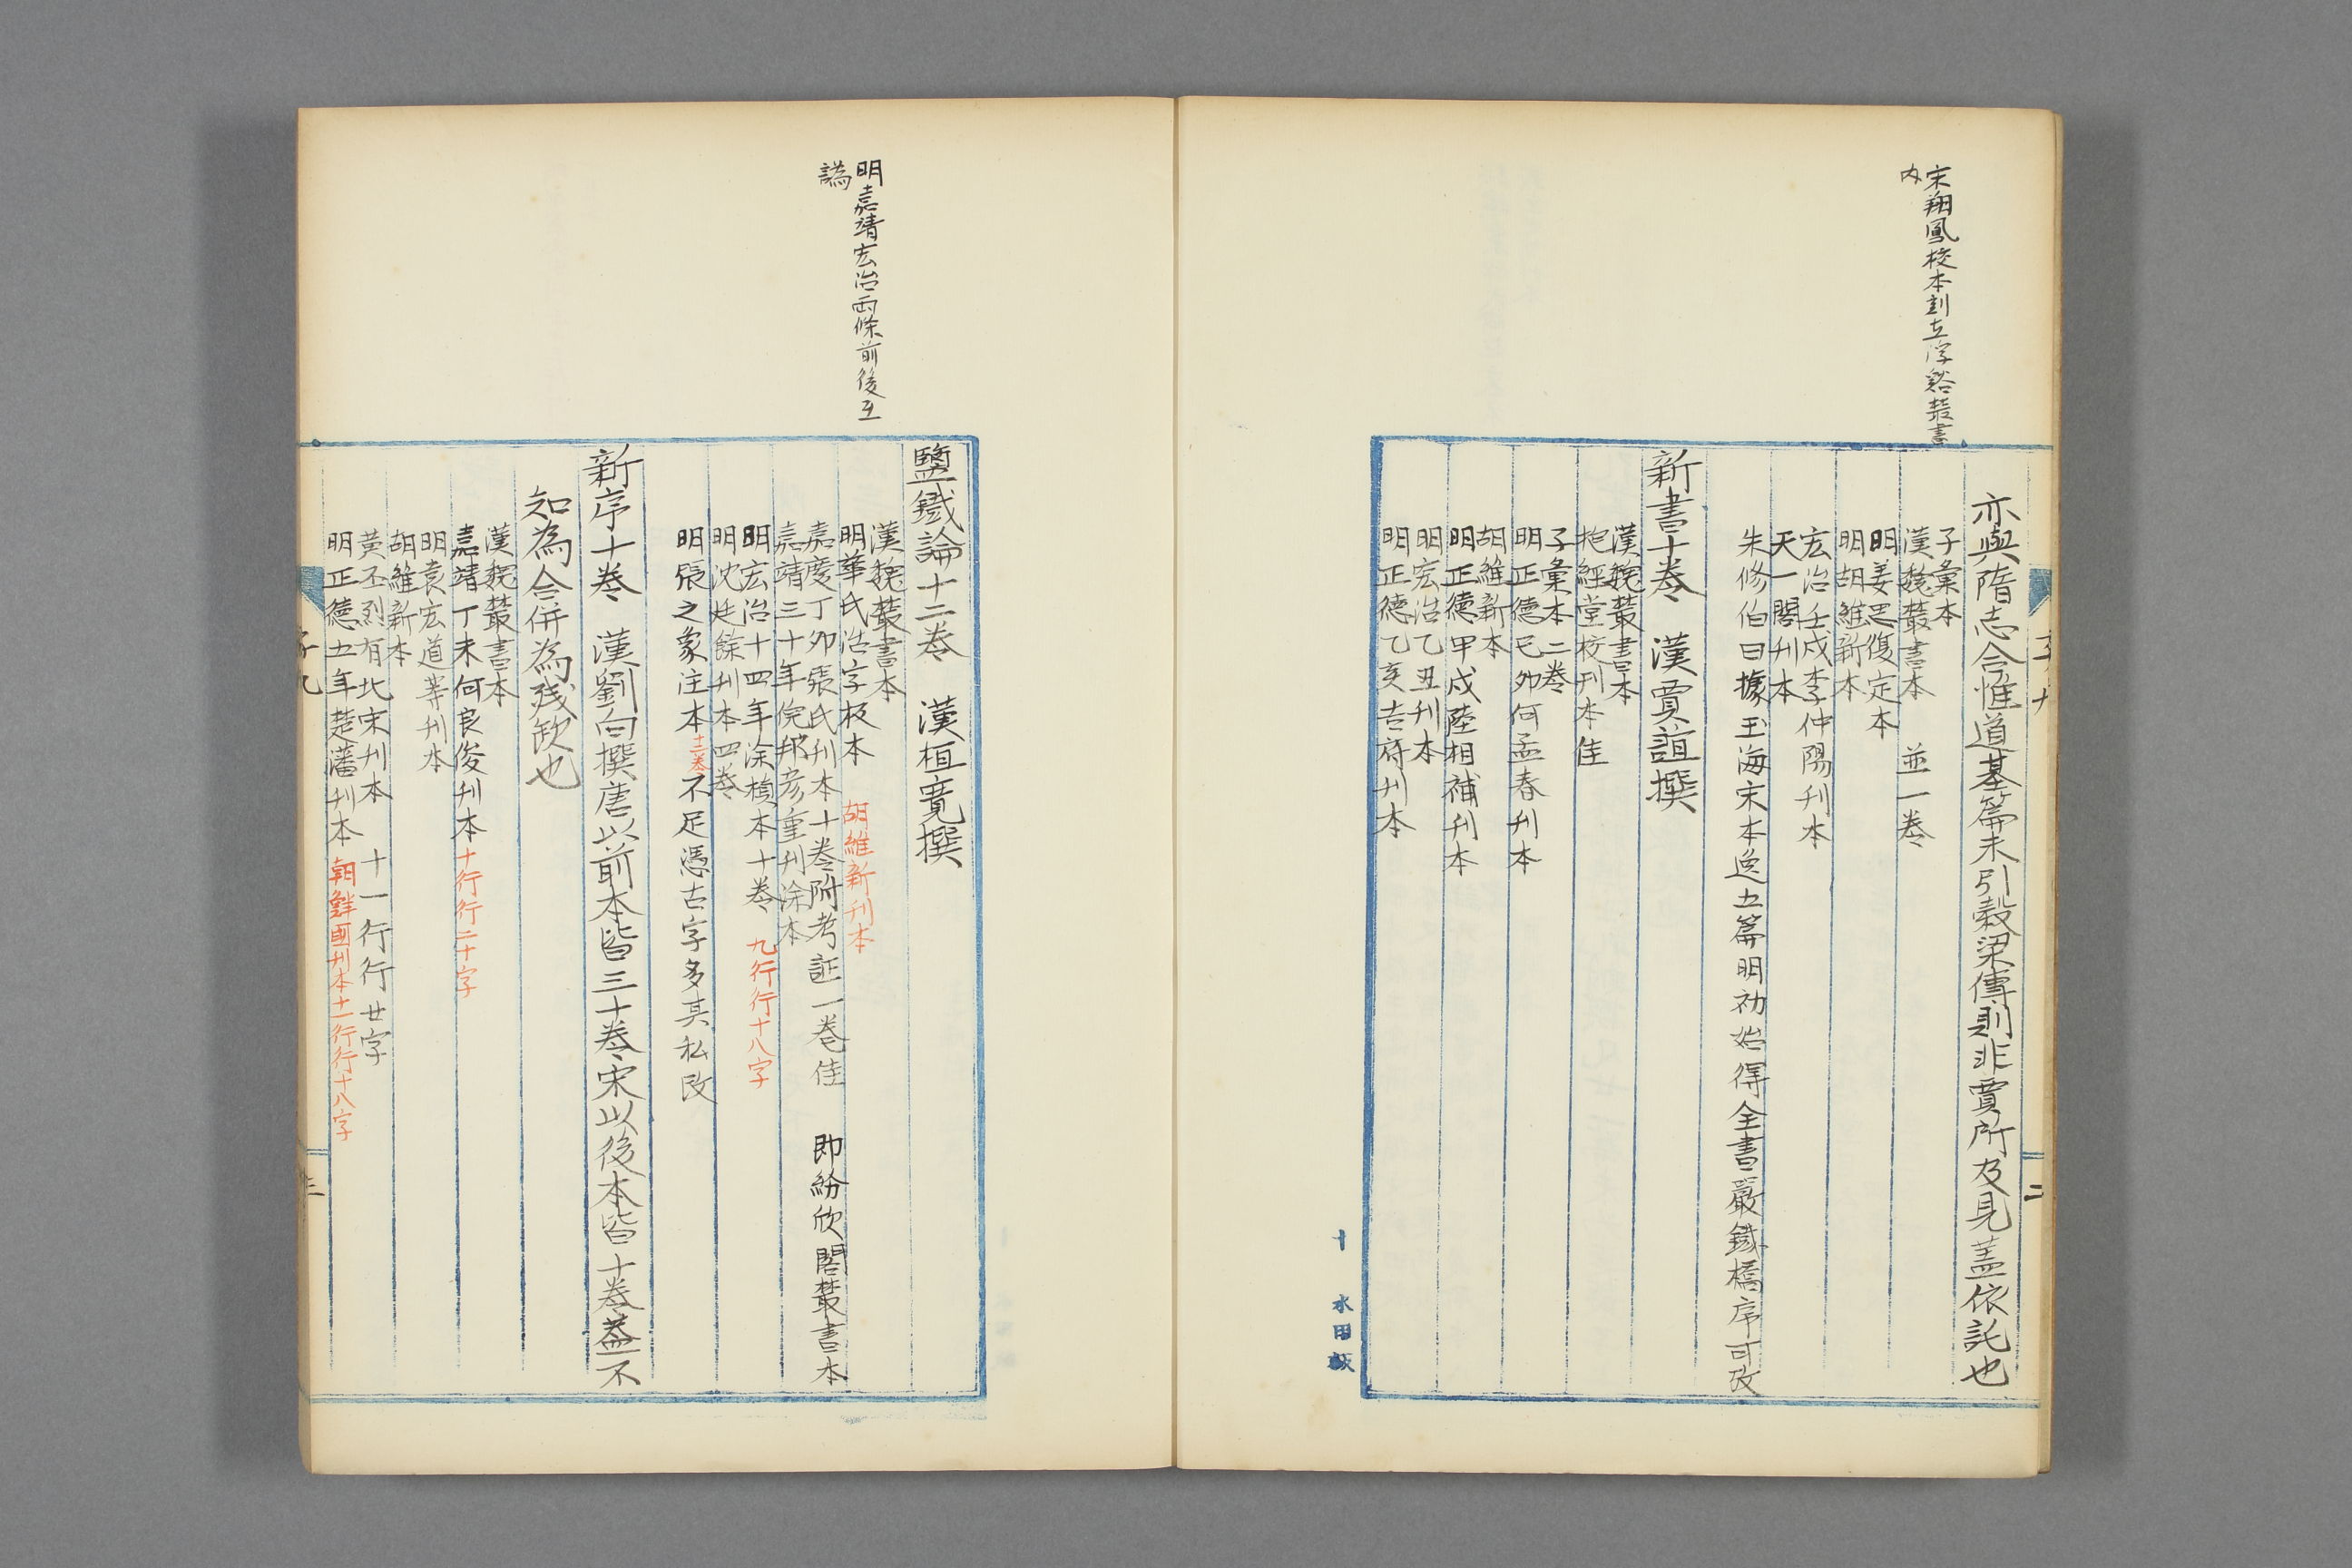 宋翔鳳校本刻立浮谿叢書
内
亦與隋志合惟道基篇末引穀梁傳則非賈所及見蓋依託也
子彙本
漢魏叢書本　並一卷
明姜思復定本
明胡維新本
宏治壬戌李仲陽刊本
天一閣刊本
朱修伯曰據玉海宋本逸五篇明初始得全書嚴鐵橋序可改
新書十卷　漢賈誼撰
漢魏叢書本
抱經堂校刊本佳
子彙本二卷
明正德己卯何孟春刊本
胡維新本
明正德甲戌陸相補刊本
明宏治乙丑刊本
明正德乙亥吉府刊本
明嘉靖宏治兩條前後互
譌
鹽鐵論十二卷　漢桓寬撰
漢魏叢書本
明華氏活字板本　胡維新刊本
嘉慶丁卯張氏刊本十卷附考証一卷佳　即紛欣閣叢書本
嘉靖三十年倪邦彦重刊涂本
明宏治十四年涂楨本十卷　九行行十八字
明沈廷餘刊本四卷
明張之象注本十二卷不足憑古字多其私改
新序十卷　漢劉向撰唐以前本皆三十卷宋以後本皆十卷蓋不
知為合併為殘缺也
漢魏叢書本
嘉靖丁未何良俊刊本十行行二十字
明袁宏道等刊本
胡維新本
黃丕烈有北宋刊本　十一行行廿字
明正德五年楚藩刊本　朝鮮國刊本十一行行十八字